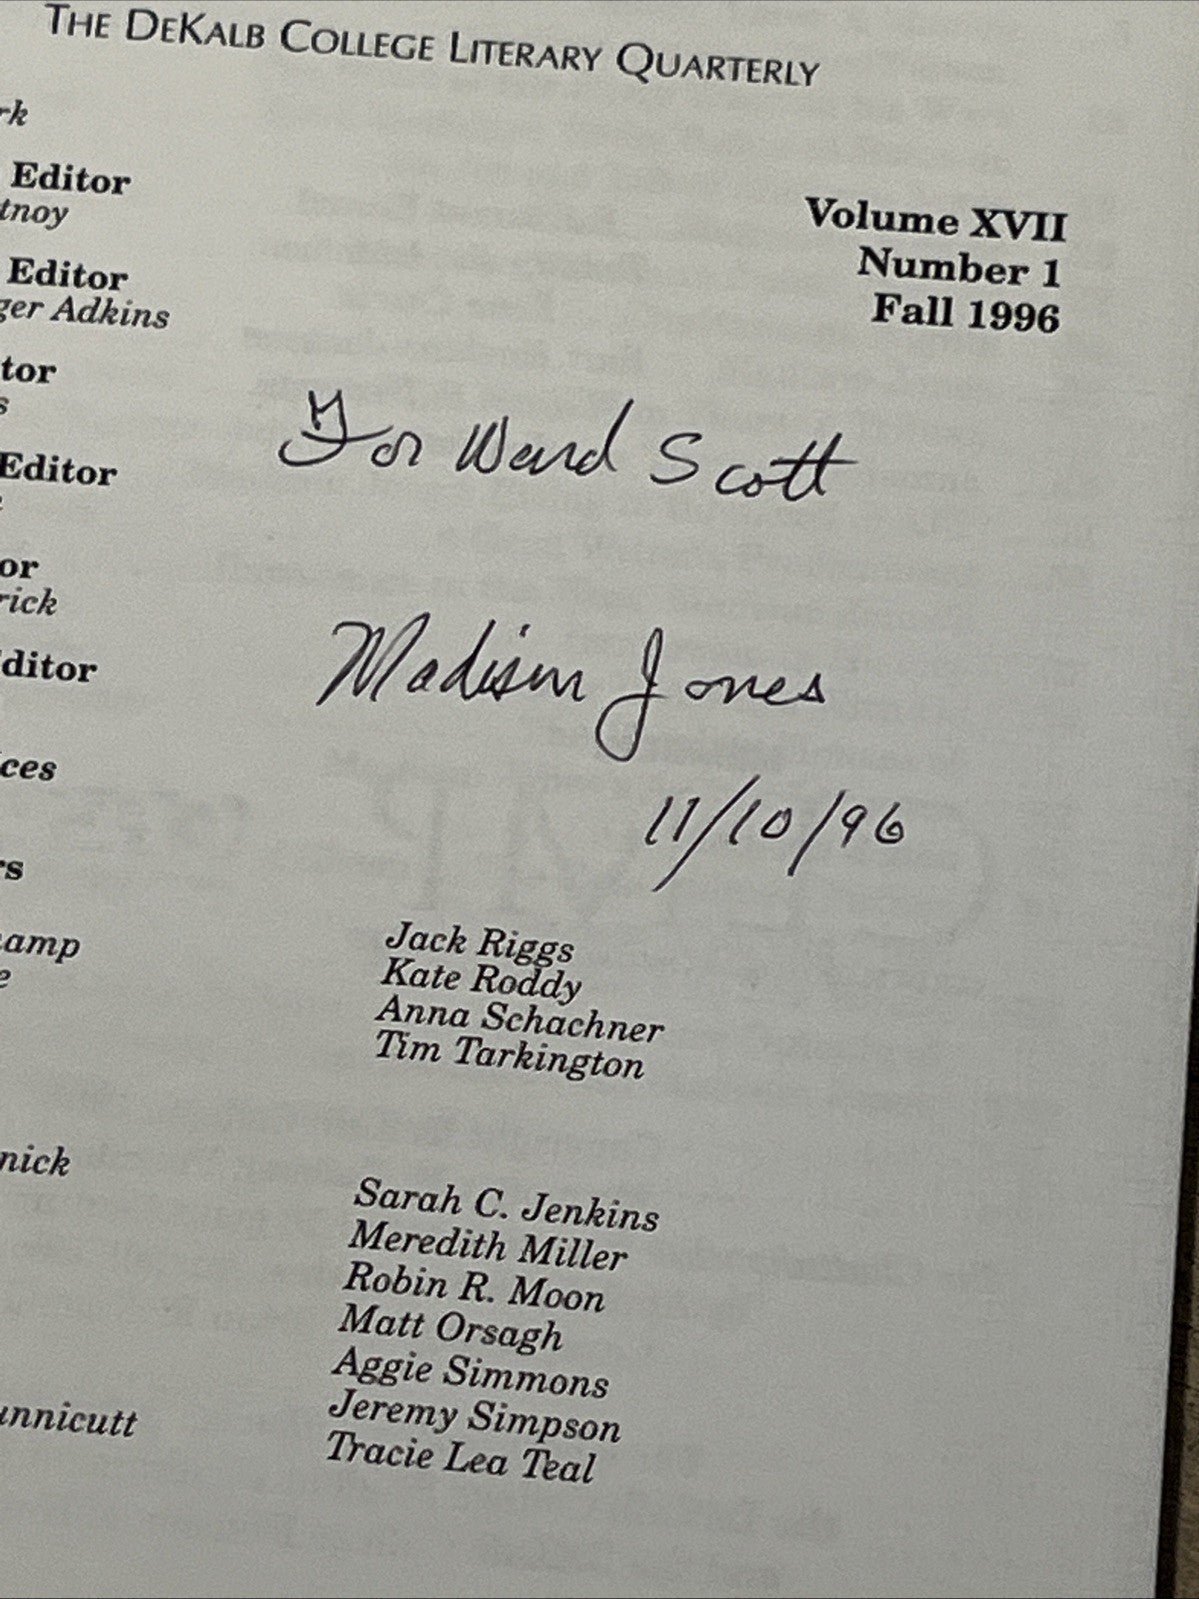 THE DEKALB COLLEGE LITERARY QUARTERLY
rk
Editor
tnoy
Editor
ger Adkins
tor
s
Editor
or
rick
ditor
ces
rs
amp
e
nick
unnicutt
Volume XVII
Number 1
Fall 1996
For Ward Scott
Madison Jones
11/10/96
Jack Riggs
Kate Roddy
Anna Schachner
Tim Tarkington
Sarah C. Jenkins
Meredith Miller
Robin R. Moon
Matt Orsagh
Aggie Simmons
Jeremy Simpson
Tracie Lea Teal